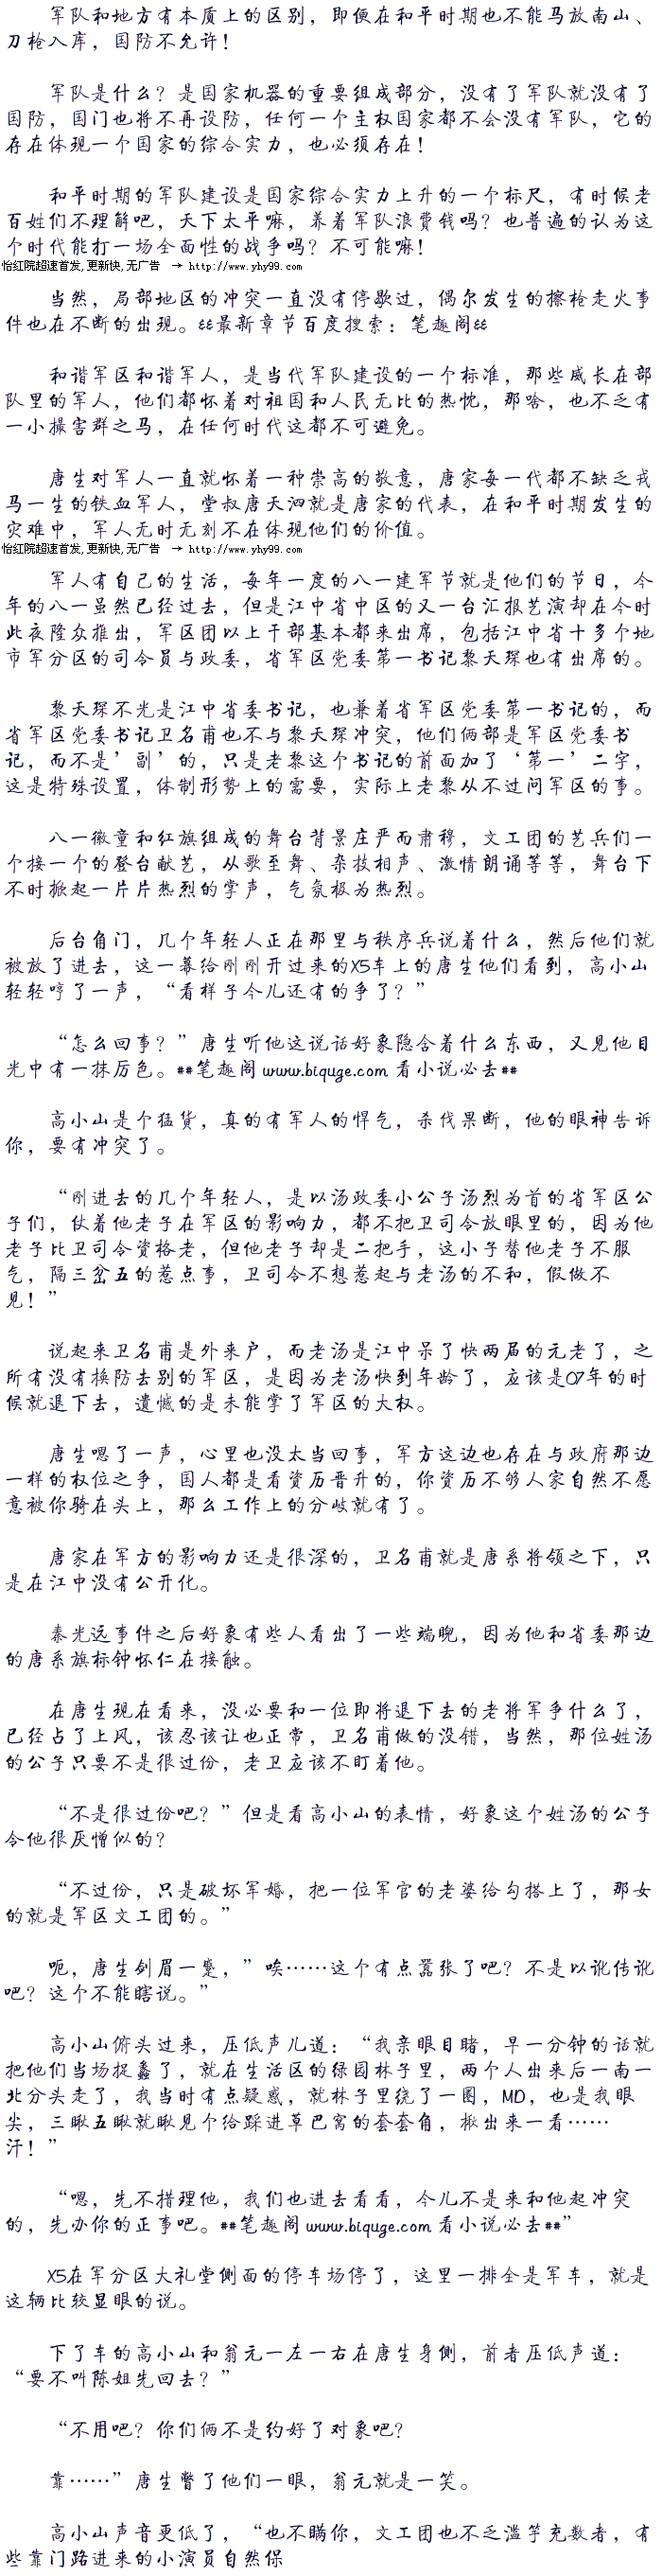 军队和地方有本质上的区别，即便在和平时期也不能马放南山、
刀枪入库，国防不允许！
军队是什么？是国家机器的重要组成部分，没有了军队就没有了
国防，国门也将不再设防，任何一个主权国家都不会没有军队，它的
存在体现一个国家的综合实力，也必须存在！
和平时期的军队建设是国家综合实力上升的一个标尺，有时候老
百姓们不理解吧，天下太平嘛，养着军队浪费钱吗？也普遍的认为这
个时代能打一场全面性的战争吗？不可能嘛！
怡红院超速首发,更新快,无广告 → http://www.yhy99.com
当然，局部地区的冲突一直没有停歇过，偶尔发生的擦枪走火事
件也在不断的出现。&&最新章节百度搜索：笔趣阁&&
和谐军区和谐军人，是当代军队建设的一个标准，那些威长在部
队里的军人，他们都怀着对祖国和人民无比的热忱，那啥，也不乏有
一小撮害群之马，在任何时代这都不可避免。
唐生对军人一直就怀着一种崇高的敬意，唐家每一代都不缺乏戎
马一生的铁血军人，堂叔唐天泗就是唐家的代表，在和平时期发生的
灾难中，军人无时无刻不在体现他们的价值。
怡红院超速首发,更新快,无广告 → http://www.yhy99.com
军人有自己的生活，每年一度的八一建军节就是他们的节日，今
年的八一虽然已经过去，但是江中省中区的又一台汇报艺演却在今时
此夜隆众推出，军区团以上干部基本都来出席，包括江中省十多个地
市军分区的司令员与政委，省军区党委第一书记黎天琛也有出席的。
黎天琛不光是江中省委书记，也兼着省军区党委第一书记的，而
省军区党委书记卫名甫也不与黎天琛冲突，他们俩部是军区党委书
记，而不是’副’的，只是老黎这个书记的前面加了‘第一’二字，
这是特殊设置，体制形势上的需要，实际上老黎从不过问军区的事。
八一徽童和红旗组成的舞台背景庄严而肃穆，文工团的艺兵们一
个接一个的登台献艺，从歌至舞、杂技相声、激情朗诵等等，舞台下
不时掀起一片片热烈的掌声，气氛极为热烈。
后台角门，几个年轻人正在那里与秩序兵说着什么，然后他们就
被放了进去，这一幕给刚刚开过来的X5车上的唐生他们看到，高小山
轻轻哼了一声，“看样子今儿还有的争了？”
“怎么回事？”唐生听他这说话好象隐含着什么东西，又见他目
光中有一抹厉色。##笔趣阁 www.biquge.com 看小说必去##
高小山是个猛货，真的有军人的悍气，杀伐果断，他的眼神告诉
你，要有冲突了。
“刚进去的几个年轻人，是以汤政委小公子汤烈为首的省军区公
子们，仗着他老子在军区的影响力，都不把卫司令放眼里的，因为他
老子比卫司令资格老，但他老子却是二把手，这小子替他老子不服
气，隔三岔五的惹点事，卫司令不想惹起与老汤的不和，假做不
见！”
说起来卫名甫是外来户，而老汤是江中呆了快两届的元老了，之
所有没有换防去别的军区，是因为老汤快到年龄了，应该是07年的时
候就退下去，遗憾的是未能掌了军区的大权。
唐生嗯了一声，心里也没太当回事，军方这边也存在与政府那边
一样的权位之争，国人都是看资历晋升的，你资历不够人家自然不愿
意被你骑在头上，那么工作上的分歧就有了。
唐家在军方的影响力还是很深的，卫名甫就是唐系将领之下，只
是在江中没有公开化。
秦光远事件之后好象有些人看出了一些端睨，因为他和省委那边
的唐系旗标钟怀仁在接触。
在唐生现在看来，没必要和一位即将退下去的老将军争什么了，
已经占了上风，该忍该让也正常，卫名甫做的没错，当然，那位姓汤
的公子只要不是很过份，老卫应该不盯着他。
“不是很过份吧？”但是看高小山的表情，好象这个姓汤的公子
令他很厌憎似的？
“不过份，只是破坏军婚，把一位军官的老婆给勾搭上了，那女
的就是军区文工团的。”
呃，唐生剑眉一蹙，”唉……这个有点嚣张了吧？不是以讹传讹
吧？这个不能瞎说。”
高小山俯头过来，压低声儿道：“我亲眼目睹，早一分钟的话就
把他们当场捉鱻了，就在生活区的绿园林子里，两个人出来后一南一
北分头走了，我当时有点疑惑，就林子里绕了一圈，MD，也是我眼
尖，三瞅五瞅就瞅见个给踩进草巴窝的套套角，揪出来一看……
汗！”
“嗯，先不搭理他，我们也进去看看，今儿不是来和他起冲突
的，先办你的正事吧。##笔趣阁 www.biquge.com 看小说必去##”
X5在军分区大礼堂侧面的停车场停了，这里一排全是军车，就是
这辆比较显眼的说。
下了车的高小山和翁元一左一右在唐生身侧，前者压低声道：
“要不叫陈姐先回去？”
“不用吧？你们俩不是约好了对象吧？
靠……”唐生瞥了他们一眼，翁元就是一笑。
高小山声音更低了，“也不瞒你，文工团也不乏滥竽充数者，有
些靠门路进来的小演员自然保